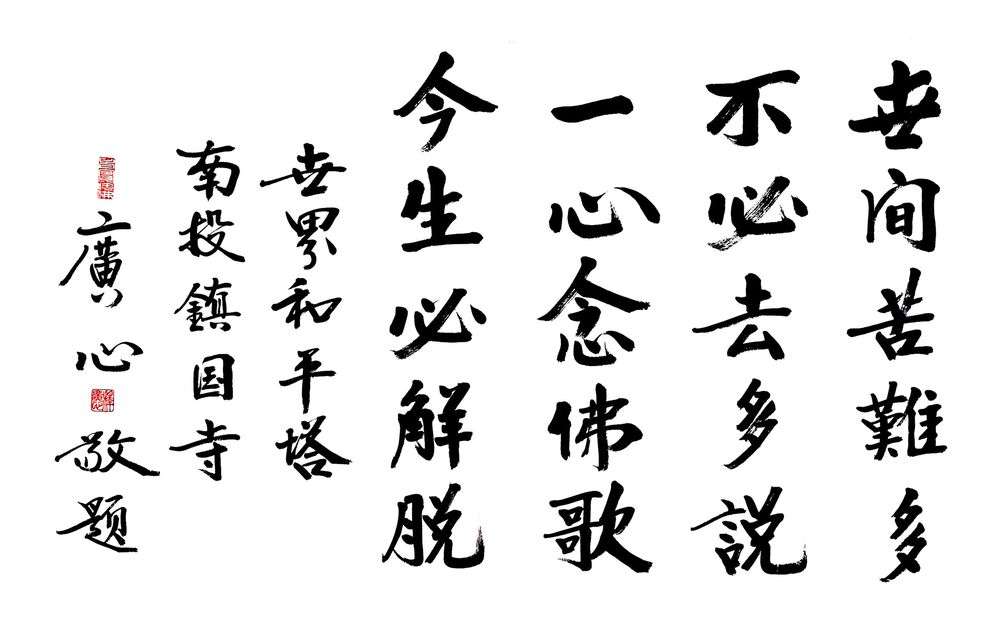 世间苦難多
不必去多説
一心念佛歌
今生必解脱
世界和平塔
南投鎮国寺
廣心敬题